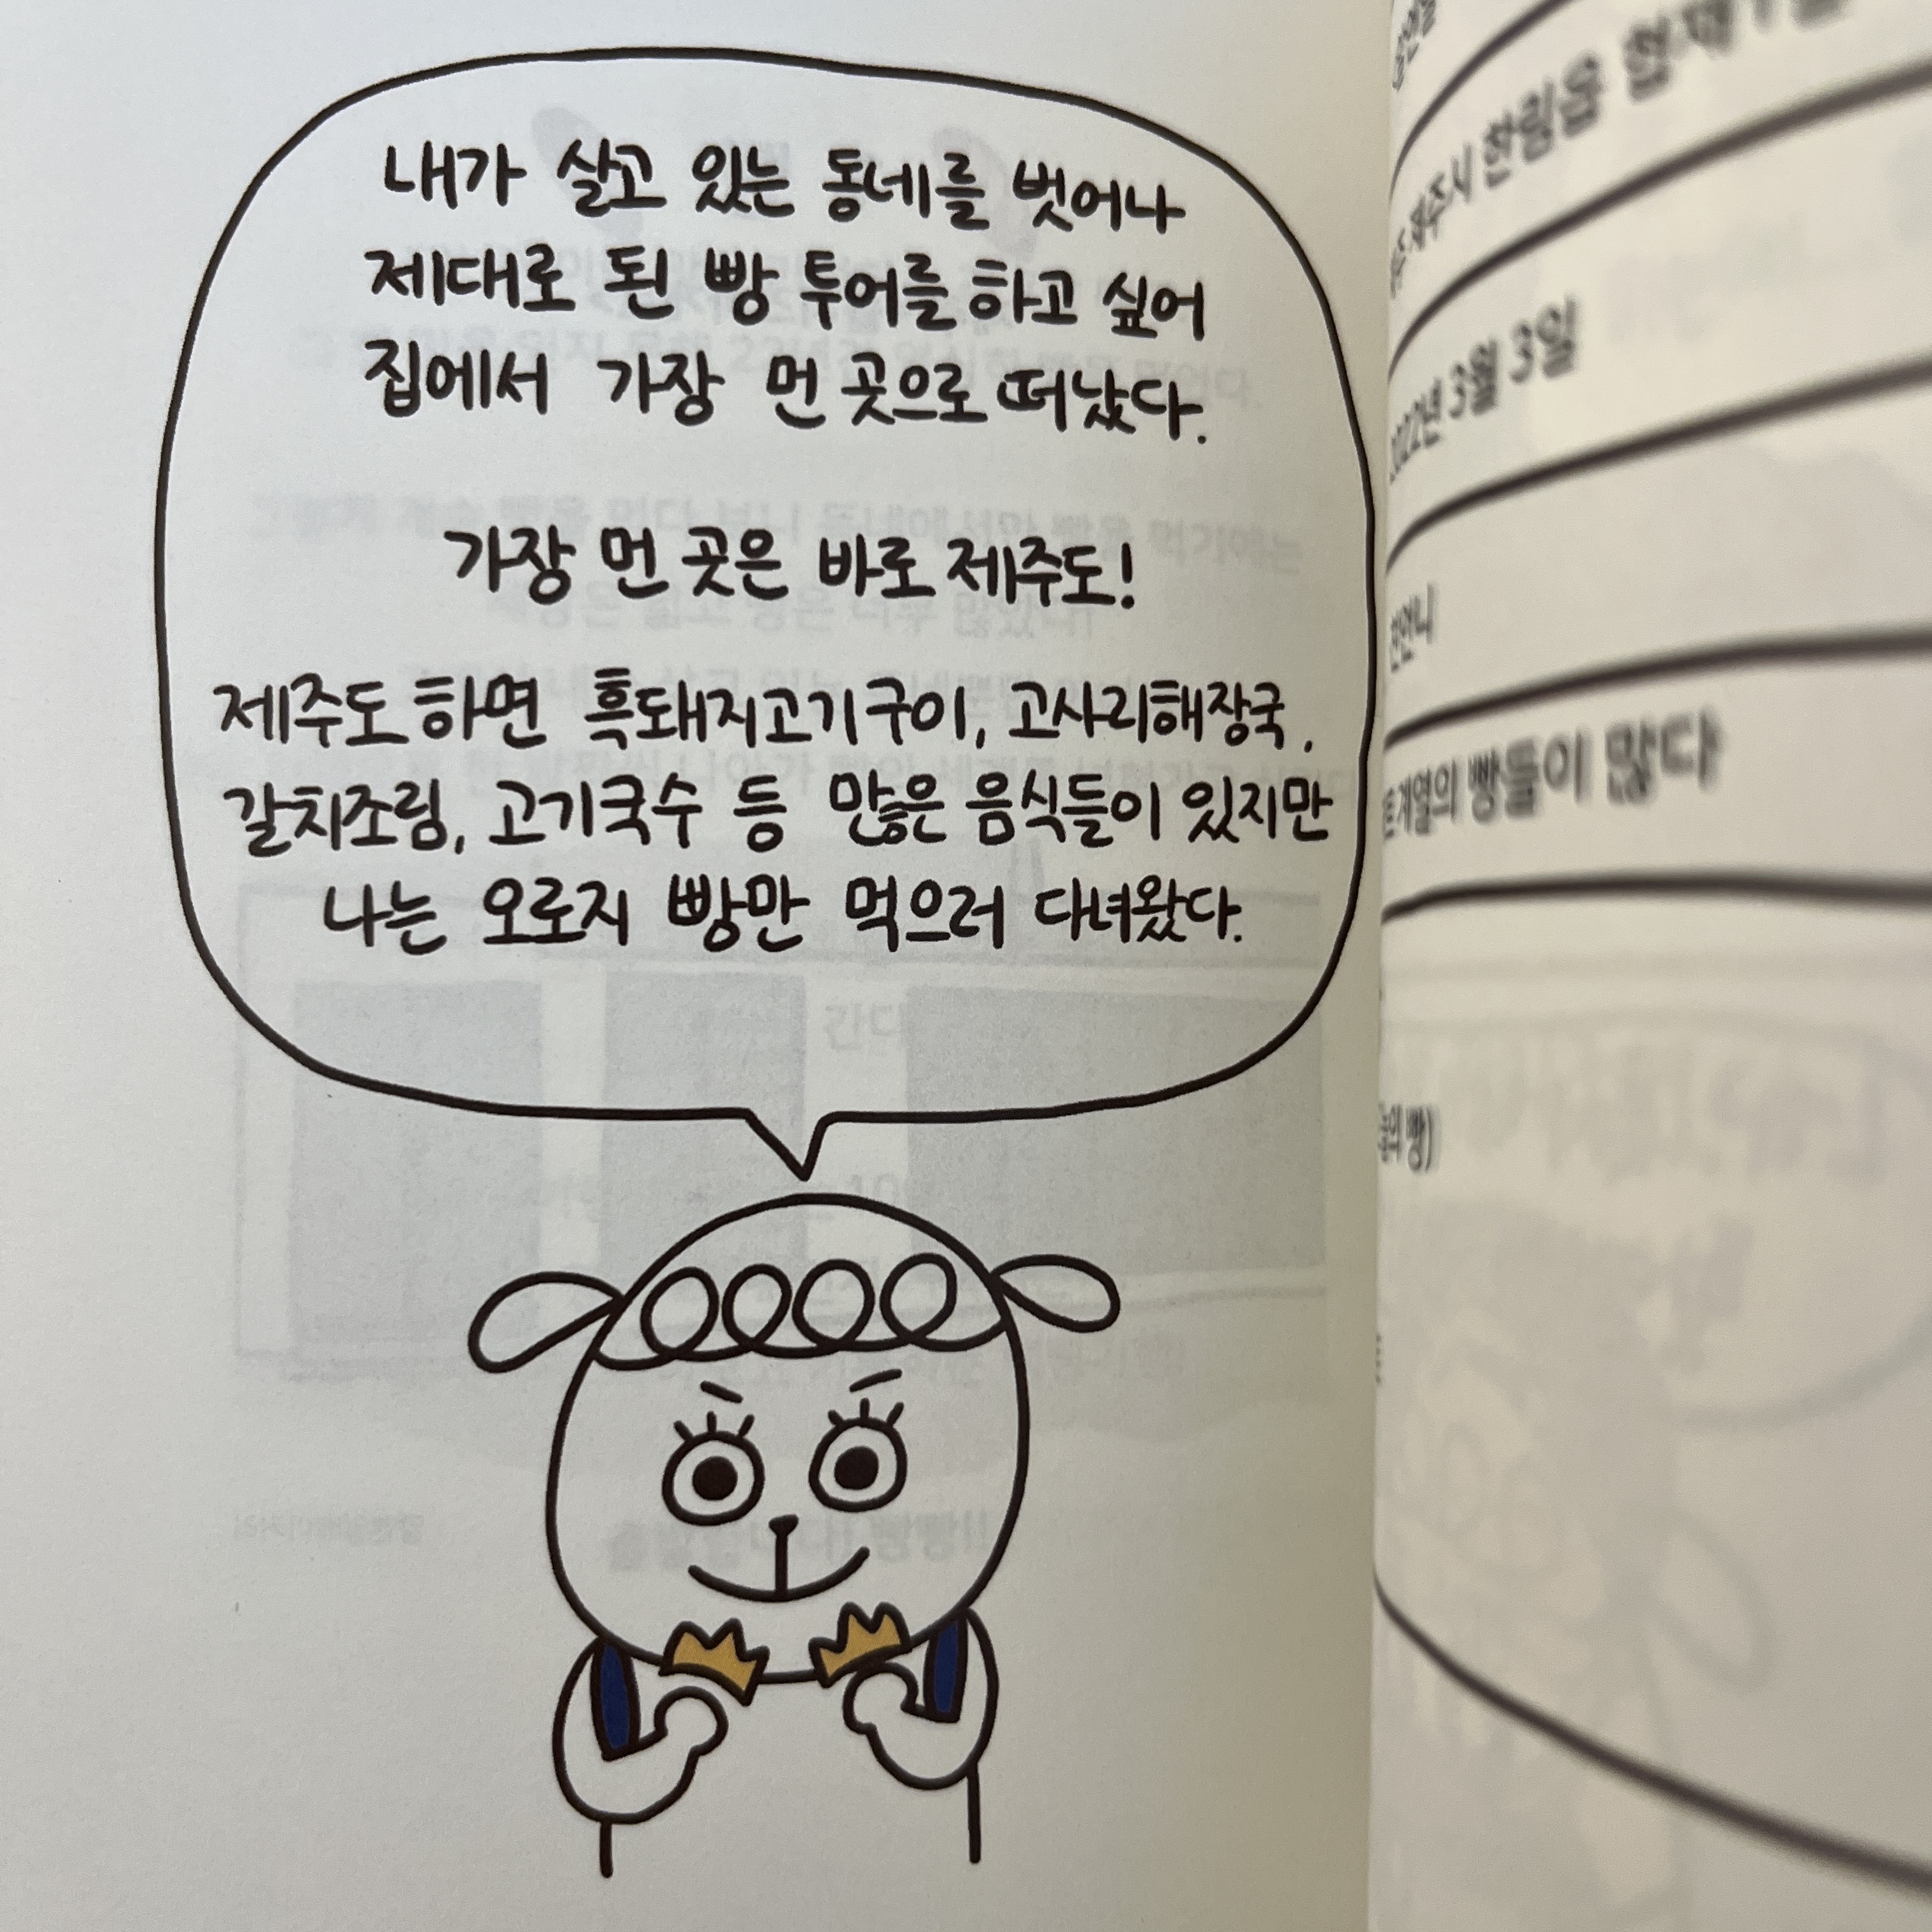 내가 살고 있는 동네를 벗어나
제대로 된 빵 투어를 하고 싶어
집에서 가장 먼 곳으로 떠났다.
가장 먼 곳은 바로 제주도!
제주도 하면 흑돼지고기구이, 고사리해장국,
갈치조림, 고기국수 등 많은 음식들이 있지만
나는 오로지 빵만 먹으러 다녀왔다.
제주시 한림읍
2022년 3월 3일
계열의 빵들이 많다
빵)